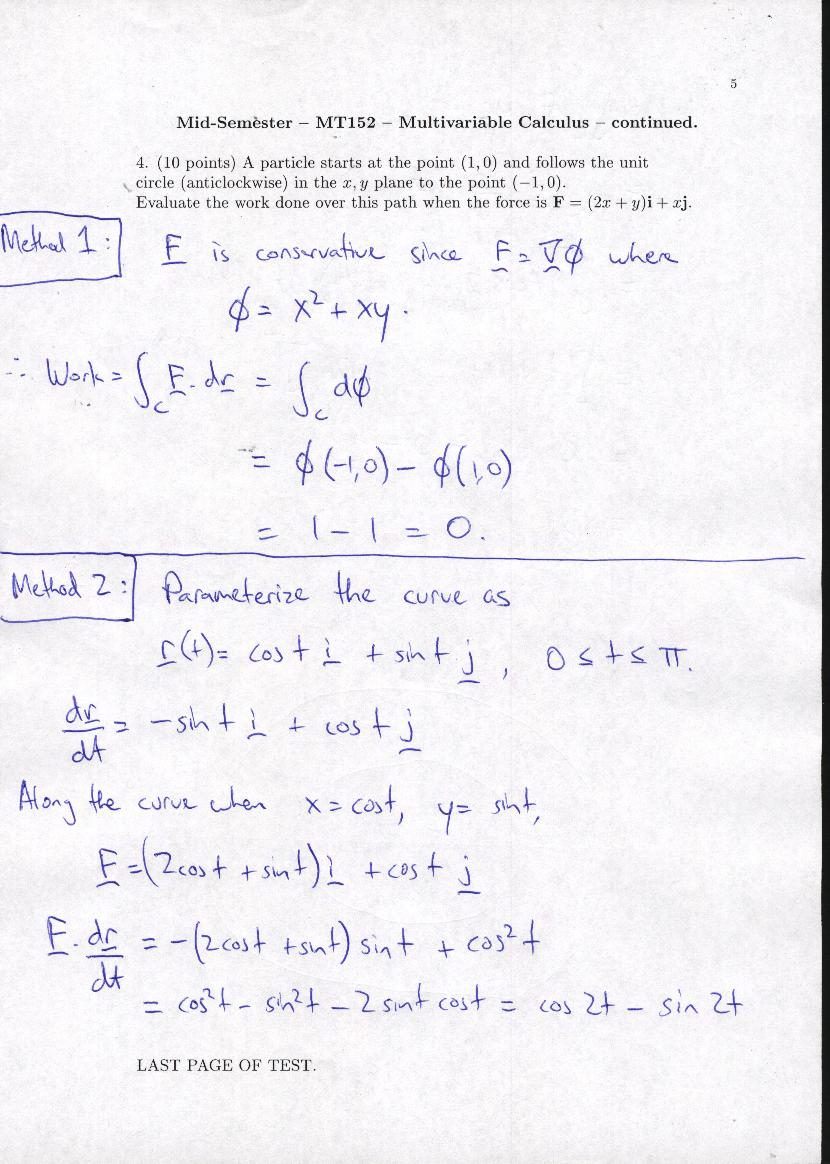 5
Mid-Semester – MT152 – Multivariable Calculus – continued.
4. (10 points) A particle starts at the point (1, 0) and follows the unit
circle (anticlockwise) in the x, y plane to the point (−1, 0).
Evaluate the work done over this path when the force is F = (2x + y)i + xj.
Method 1: F is conservative since F = ∇φ where
φ = x² + xy.
∴ Work = ∫_C F . dr = ∫_C dφ
= φ(-1,0) − φ(1,0)
= 1 − 1 = 0.
Method 2: Parameterize the curve as
r(t) = cos t i + sin t j, 0 ≤ t ≤ π.
dr/dt = − sin t i + cos t j
Along the curve when x = cost, y = sint,
F = (2cos t + sin t) i + cos t j
F . dr/dt = −(2cost + sint) sin t + cos² t
= cos²t − sin²t − 2 sint cost = cos 2t − sin 2t
LAST PAGE OF TEST.